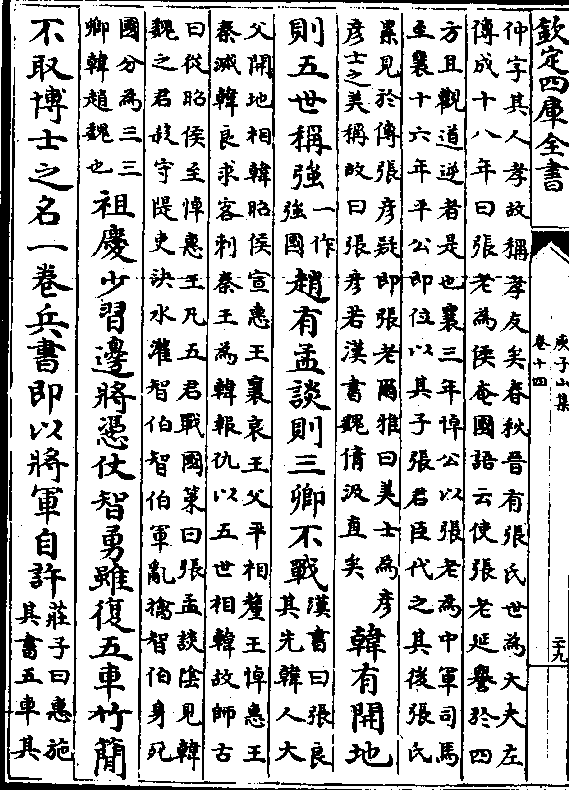 欽定四庫全書
庾子山集
卷十四
二十九
仲字其人孝故稱孝友矣春秋晉有張氏世為大夫左
傳成十八年曰張老為侯奄國語云使張老延譽於四
方且觀道逆者是也襄三年悼公以張老為中軍司馬
至襄十六年平公即位以其子張君臣代之其後張氏
累見於傳張彦疑即張老爾雅曰美士為彦
彦士之美稱故曰張彦若漢書魏倩汲直矣
韓有開地
則五世稱強
一作
強國
趙有孟談則三卿不戰
漢書曰張良
其先韓人大
父開地相韓昭侯宣惠王襄哀王父平相釐王悼惠王
秦滅韓良求客刺秦王為韓報仇以五世相韓故師古
曰從昭侯至悼惠王凡五君戰國策曰張孟談陰見韓
魏之君殺守隄吏決水灌智伯智伯軍亂擒智伯身死
國分為三三
卿韓趙魏也
祖慶少習邊將憑仗智勇雖復五車竹簡
不取博士之名一卷兵書即以將軍自許
莊子曰惠施
其書五車其